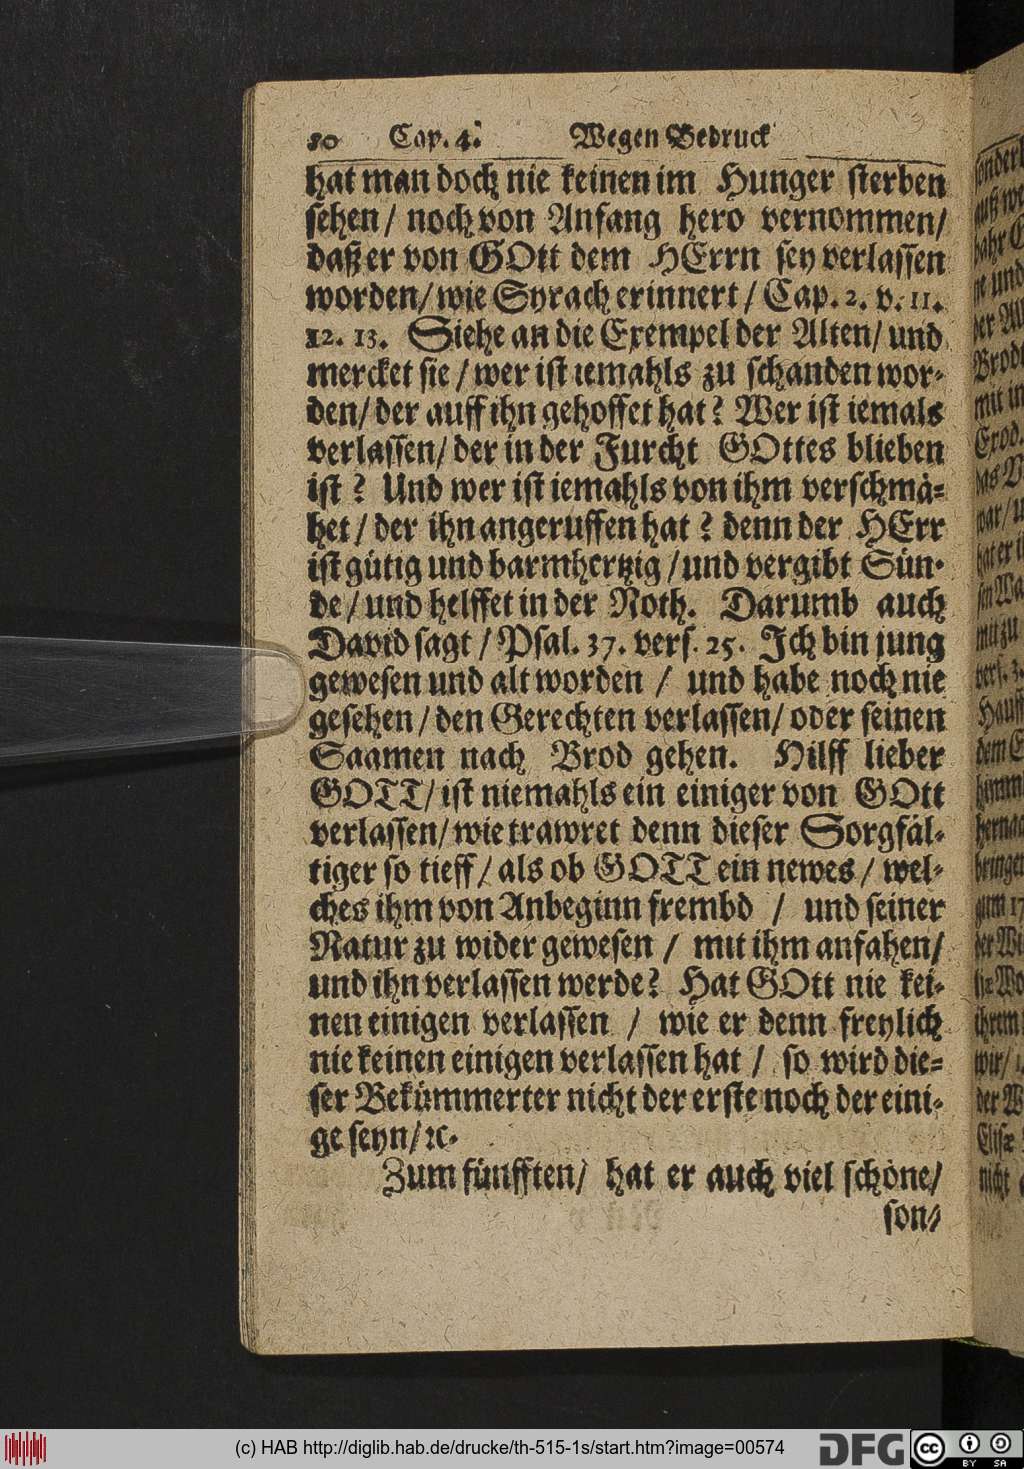 80 Cap. 4. Wegen Bedruck
hat man doch nie keinen im Hunger sterben
sehen / noch von Anfang hero vernommen /
daß er von GOtt dem HErrn sey verlassen
worden / wie Syrach erinnert / Cap. 2. v. 11.
12. 13. Siehe an die Exempel der Alten / und
mercket sie / wer ist iemahls zu schanden wor-
den / der auff ihn gehoffet hat? Wer ist iemals
verlassen / der in der Furcht GOttes blieben
ist? Und wer ist iemahls von ihm verschmä-
het / der ihn angeruffen hat? denn der HErr
ist gütig und barmhertzig / und vergibt Sün-
de / und helffet in der Noth. Darumb auch
David sagt / Psal. 37. vers. 25. Ich bin jung
gewesen und alt worden / und habe noch nie
gesehen / den Gerechten verlassen / oder seinen
Saamen nach Brod gehen. Hilff lieber
GOTT / ist niemahls ein einiger von GOtt
verlassen / wie trawret denn dieser Sorgfäl-
tiger so tieff / als ob GOTT ein newes / wel-
ches ihm von Anbeginn frembd / und seiner
Natur zu wider gewesen / mit ihm anfahen /
und ihn verlassen werde? Hat GOtt nie kei-
nen einigen verlassen / wie er denn freylich
nie keinen einigen verlassen hat / so wird die-
ser Bekümmerter nicht der erste noch der eini-
ge seyn / ꝛc.
Zum fünfften / hat er auch viel schöne /
son-
(c) HAB http://diglib.hab.de/drucke/th-515-1s/start.htm?image=00574
DFG
cc BY SA